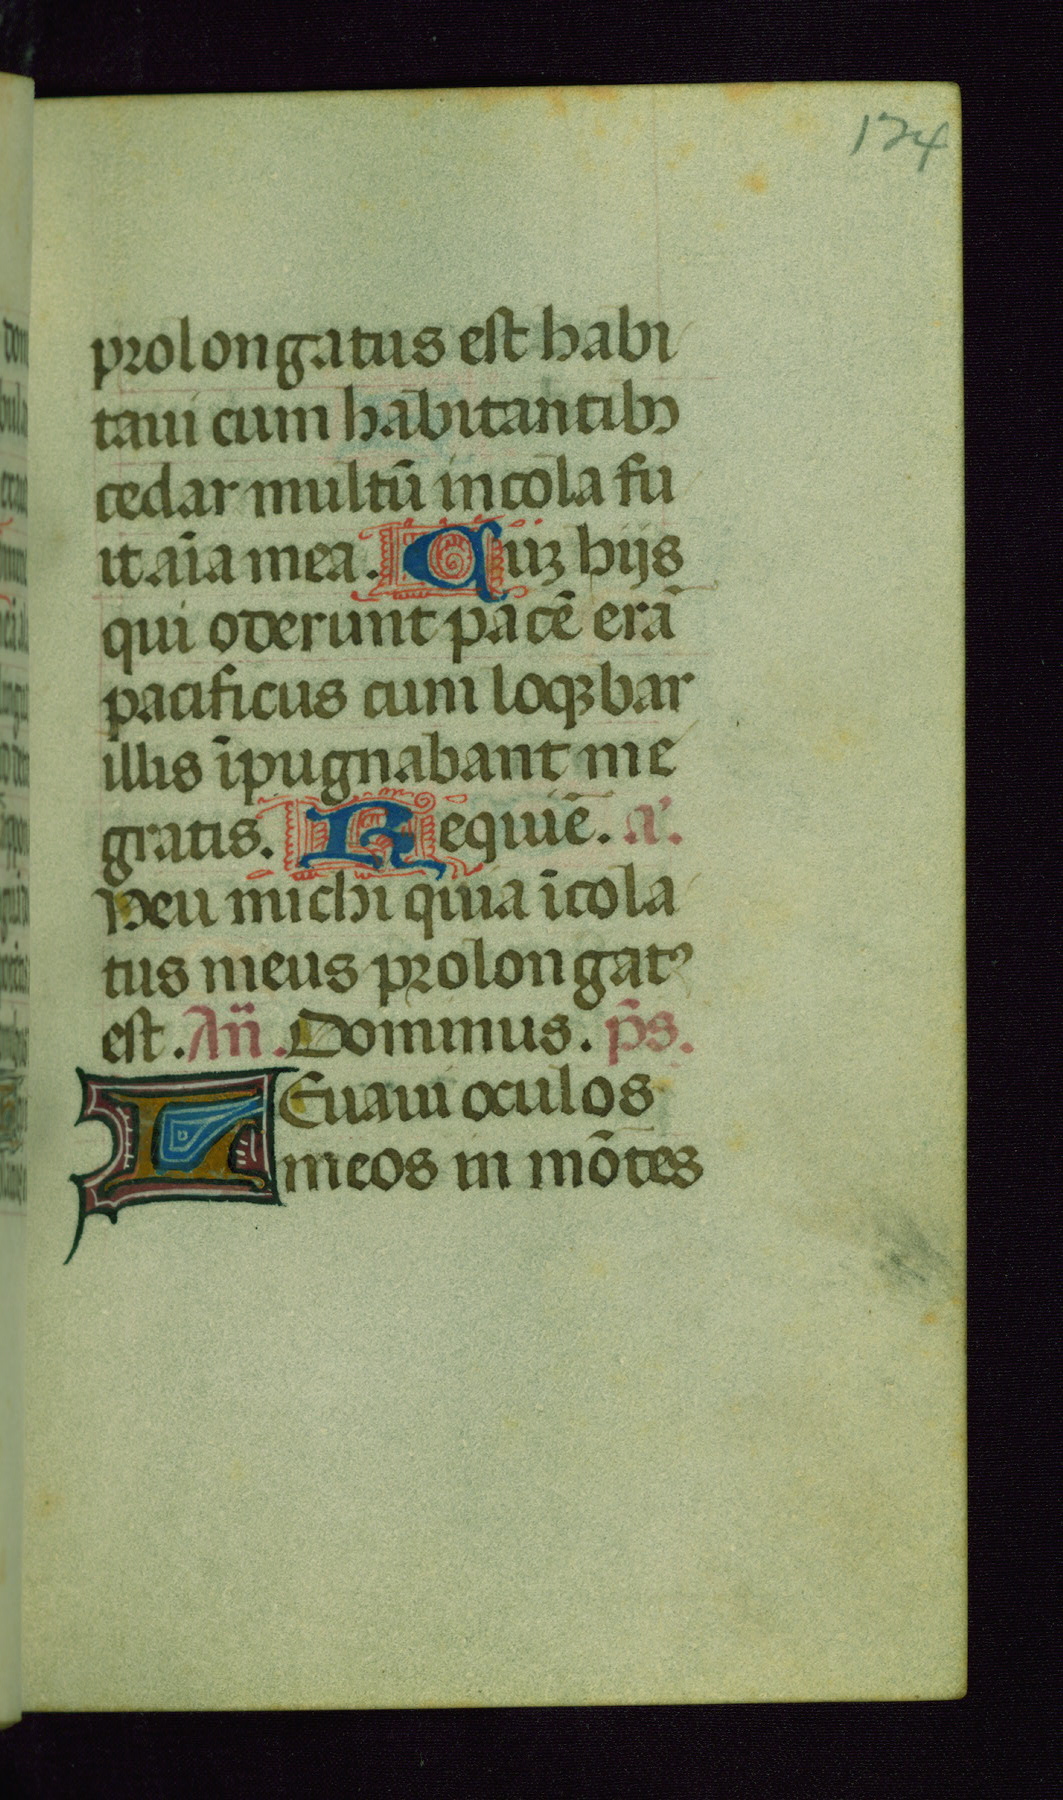 174
prolongatus est habi
taui cum habitantibꝫ
cedar multū incola fu
it aīa mea. Cūꝫ hijs
qui oderunt pacē erā
pacificus cum loqꝫbar
illis īpugnabant me
gratis. Requiē. a'.
Heu michi quia īcola
tus meus prolongatꝰ
est. An̄. Dominus. p̄s.
LEuaui oculos
meos in mōtes